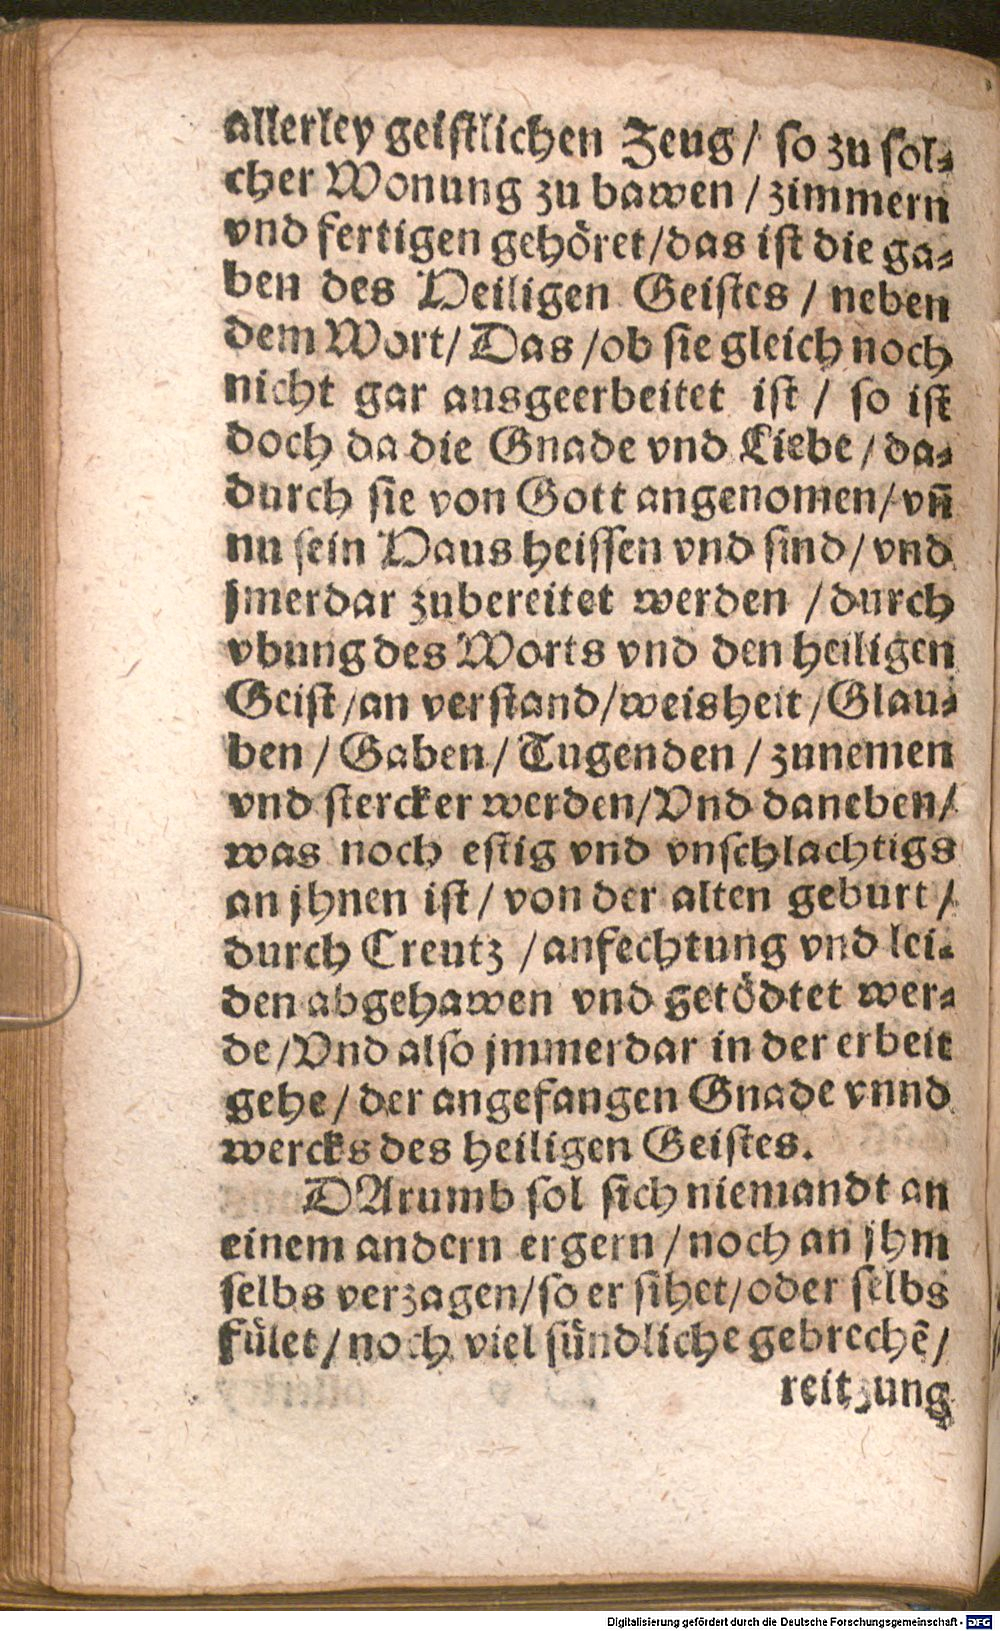 allerley geistlichen Zeug/ so zu sol⸗
cher Wonung zu bawen / zimmern
vnd fertigen gehöret/das ist die ga⸗
ben des Heiligen Geistes / neben
dem Wort/ Das /ob sie gleich noch
nicht gar ausgeerbeitet ist / so ist
doch da die Gnade vnd Liebe / da⸗
durch sie von Gott angenomen/ vñ
nu sein Haus heissen vnd sind/ vnd
jmerdar zubereitet werden / durch
vbung des Worts vnd den heiligen
Geist /an verstand/weisheit /Glau⸗
ben / Gaben / Tugenden / zunemen
vnd stercker werden/Vnd daneben/
was noch estig vnd vnschlachtigs
an jhnen ist / von der alten geburt /
durch Creutz /anfechtung vnd lei⸗
den abgehawen vnd getödtet wer⸗
de/Vnd also jmmerdar in der erbeit
gehe / der angefangen Gnade vnnd
wercks des heiligen Geistes.
DArumb sol sich niemandt an
einem andern ergern /noch an jhm
selbs verzagen/so er sihet/oder selbs
fület / noch viel sündliche gebrechẽ/
reitzung
Digitalisierung gefördert durch die Deutsche Forschungsgemeinschaft - DFG